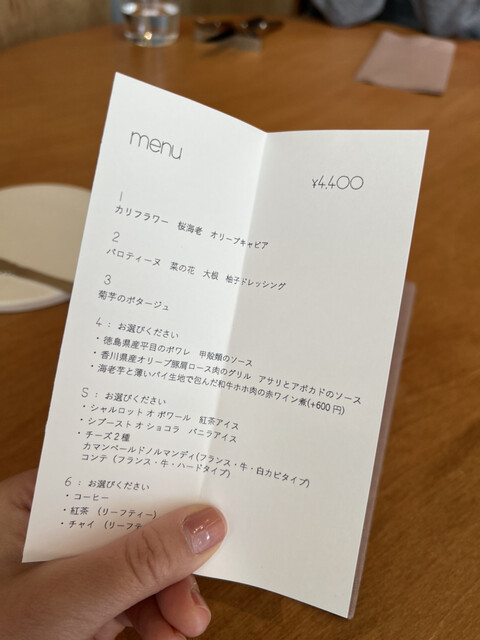 menu
¥4,400
1
カリフラワー 桜海老 オリーブキャビア
2
バロティーヌ 菜の花 大根 柚子ドレッシング
3
菊芋のポタージュ
4 : お選びください
・徳島県産平目のポワレ 甲殻類のソース
・香川県産オリーブ豚肩ロース肉のグリル アサリとアボカドのソース
・海老芋と薄いパイ生地で包んだ和牛ホホ肉の赤ワイン煮(+600円)
5 : お選びください
・シャルロット オ ポワール 紅茶アイス
・シブースト オ ショコラ バニラアイス
・チーズ2種
カマンベールドノルマンディ(フランス・牛・白カビタイプ)
コンテ (フランス・牛・ハードタイプ)
6 : お選びください
・コーヒー
・紅茶 (リーフティー)
・チャイ (リーフテ